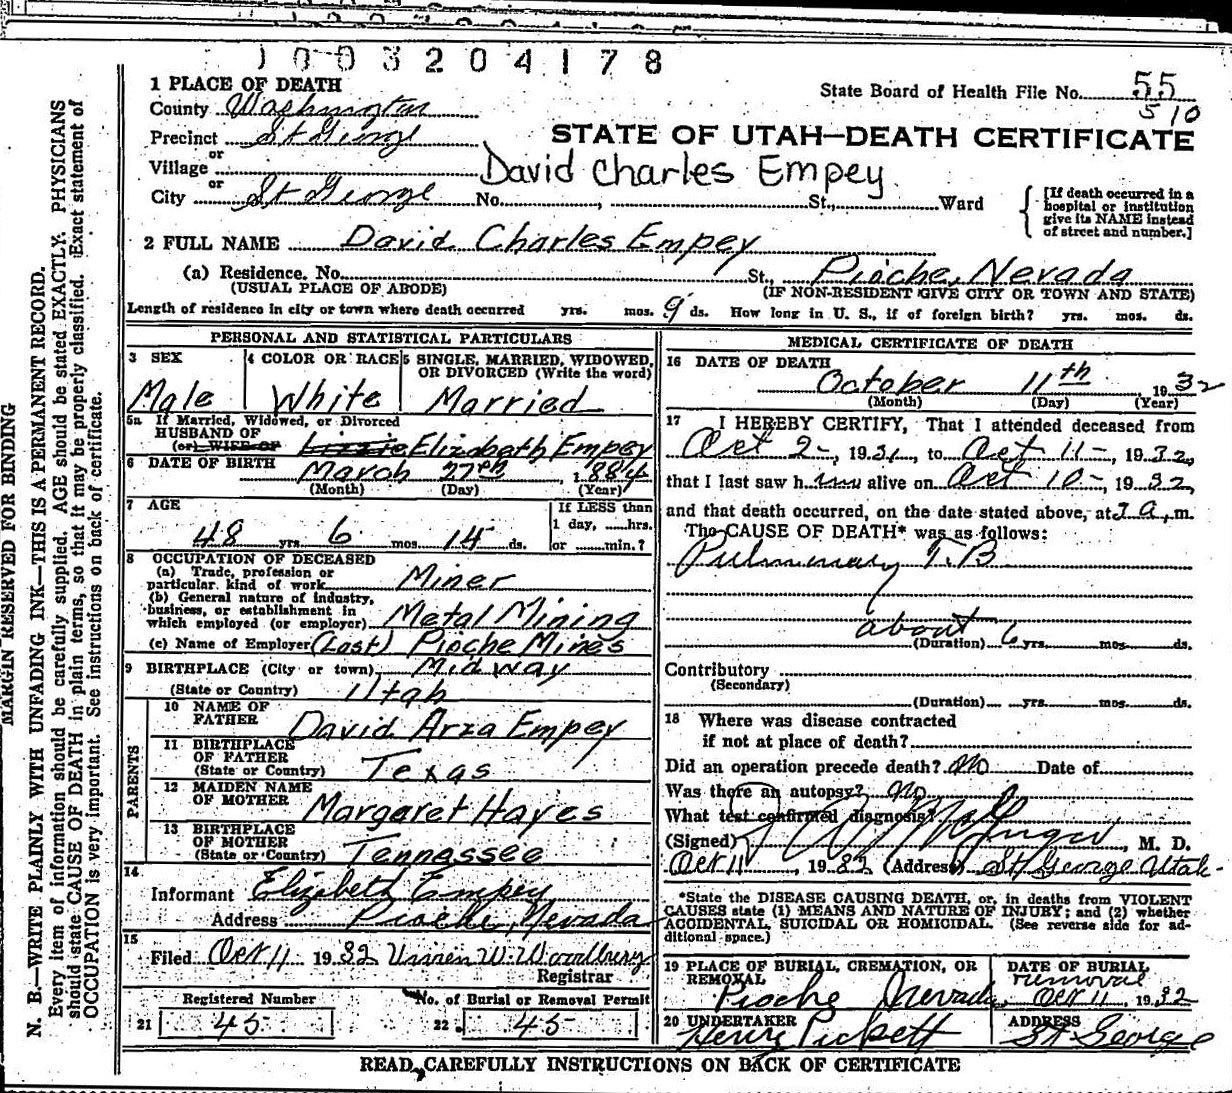 1003204178
1 PLACE OF DEATH
State Board of Health File No. 55
510
County Washington
Precinct St George
STATE OF UTAH—DEATH CERTIFICATE
or
Village
David Charles Empey
or
City St George No. , St., Ward
[If death occurred in a
hospital or institution
give its NAME instead
of street and number.]
2 FULL NAME David Charles Empey
(a) Residence. No. St., Pioche, Nevada
(USUAL PLACE OF ABODE) (IF NON-RESIDENT GIVE CITY OR TOWN AND STATE)
Length of residence in city or town where death occurred yrs. mos. 9 ds. How long in U. S., if of foreign birth? yrs. mos. ds.
PERSONAL AND STATISTICAL PARTICULARS
3 SEX
Male
4 COLOR OR RACE
White
5 SINGLE, MARRIED, WIDOWED,
OR DIVORCED (Write the word)
Married
5a If Married, Widowed, or Divorced
HUSBAND OF
(or) WIFE OF Lizzie Elizabeth Empey
6 DATE OF BIRTH March 27th, 1884
(Month) (Day) (Year)
7 AGE
48 yrs 6 mos. 14 ds.
If LESS than
1 day, ......hrs.
or ......min.?
8 OCCUPATION OF DECEASED
(a) Trade, profession or
particular kind of work Miner
(b) General nature of industry,
business, or establishment in
which employed (or employer) Metal Mining
(c) Name of Employer (Last) Pioche Mines
9 BIRTHPLACE (City or town) Midway
(State or Country) Utah
PARENTS
10 NAME OF
FATHER David Arza Empey
11 BIRTHPLACE
OF FATHER
(State or Country) Texas
12 MAIDEN NAME
OF MOTHER Margaret Hayes
13 BIRTHPLACE
OF MOTHER
(State or Country) Tennessee
14
Informant Elizabeth Empey
Address Pioche, Nevada
15
Filed Oct 11 1932 W. Woodbury
Registrar
Registered Number
21 45
No. of Burial or Removal Permit
22. 45
MEDICAL CERTIFICATE OF DEATH
16 DATE OF DEATH
October 11th 1932
(Month) (Day) (Year)
17 I HEREBY CERTIFY, That I attended deceased from
Oct 2-, 1931, to Oct 11-, 1932,
that I last saw him alive on Oct 10-, 1932,
and that death occurred, on the date stated above, at a.m.
The CAUSE OF DEATH* was as follows:
Pulmonary T.B
about 6
(Duration) yrs. mos. ds.
Contributory
(Secondary)
(Duration) yrs. mos. ds.
18 Where was disease contracted
if not at place of death?
Did an operation precede death? No Date of
Was there an autopsy? No
What test confirmed diagnosis?
(Signed) , M. D.
Oct 11, 1932 (Address) St George Utah-
*State the DISEASE CAUSING DEATH, or, in deaths from VIOLENT
CAUSES state (1) MEANS AND NATURE OF INJURY; and (2) whether
ACCIDENTAL, SUICIDAL OR HOMICIDAL. (See reverse side for ad-
ditional space.)
19 PLACE OF BURIAL, CREMATION, OR
REMOVAL
Pioche Nevada
DATE OF BURIAL
removal
Oct 11, 1932
20 UNDERTAKER
Henry Pickett
ADDRESS
St George
READ CAREFULLY INSTRUCTIONS ON BACK OF CERTIFICATE
MARGIN RESERVED FOR BINDING
N. B.—WRITE PLAINLY WITH UNFADING INK—THIS IS A PERMANENT RECORD.
Every item of information should be carefully supplied. AGE should be stated EXACTLY. PHYSICIANS
should state CAUSE OF DEATH in plain terms, so that it may be properly classified. Exact statement of
OCCUPATION is very important. See instructions on back of certificate.